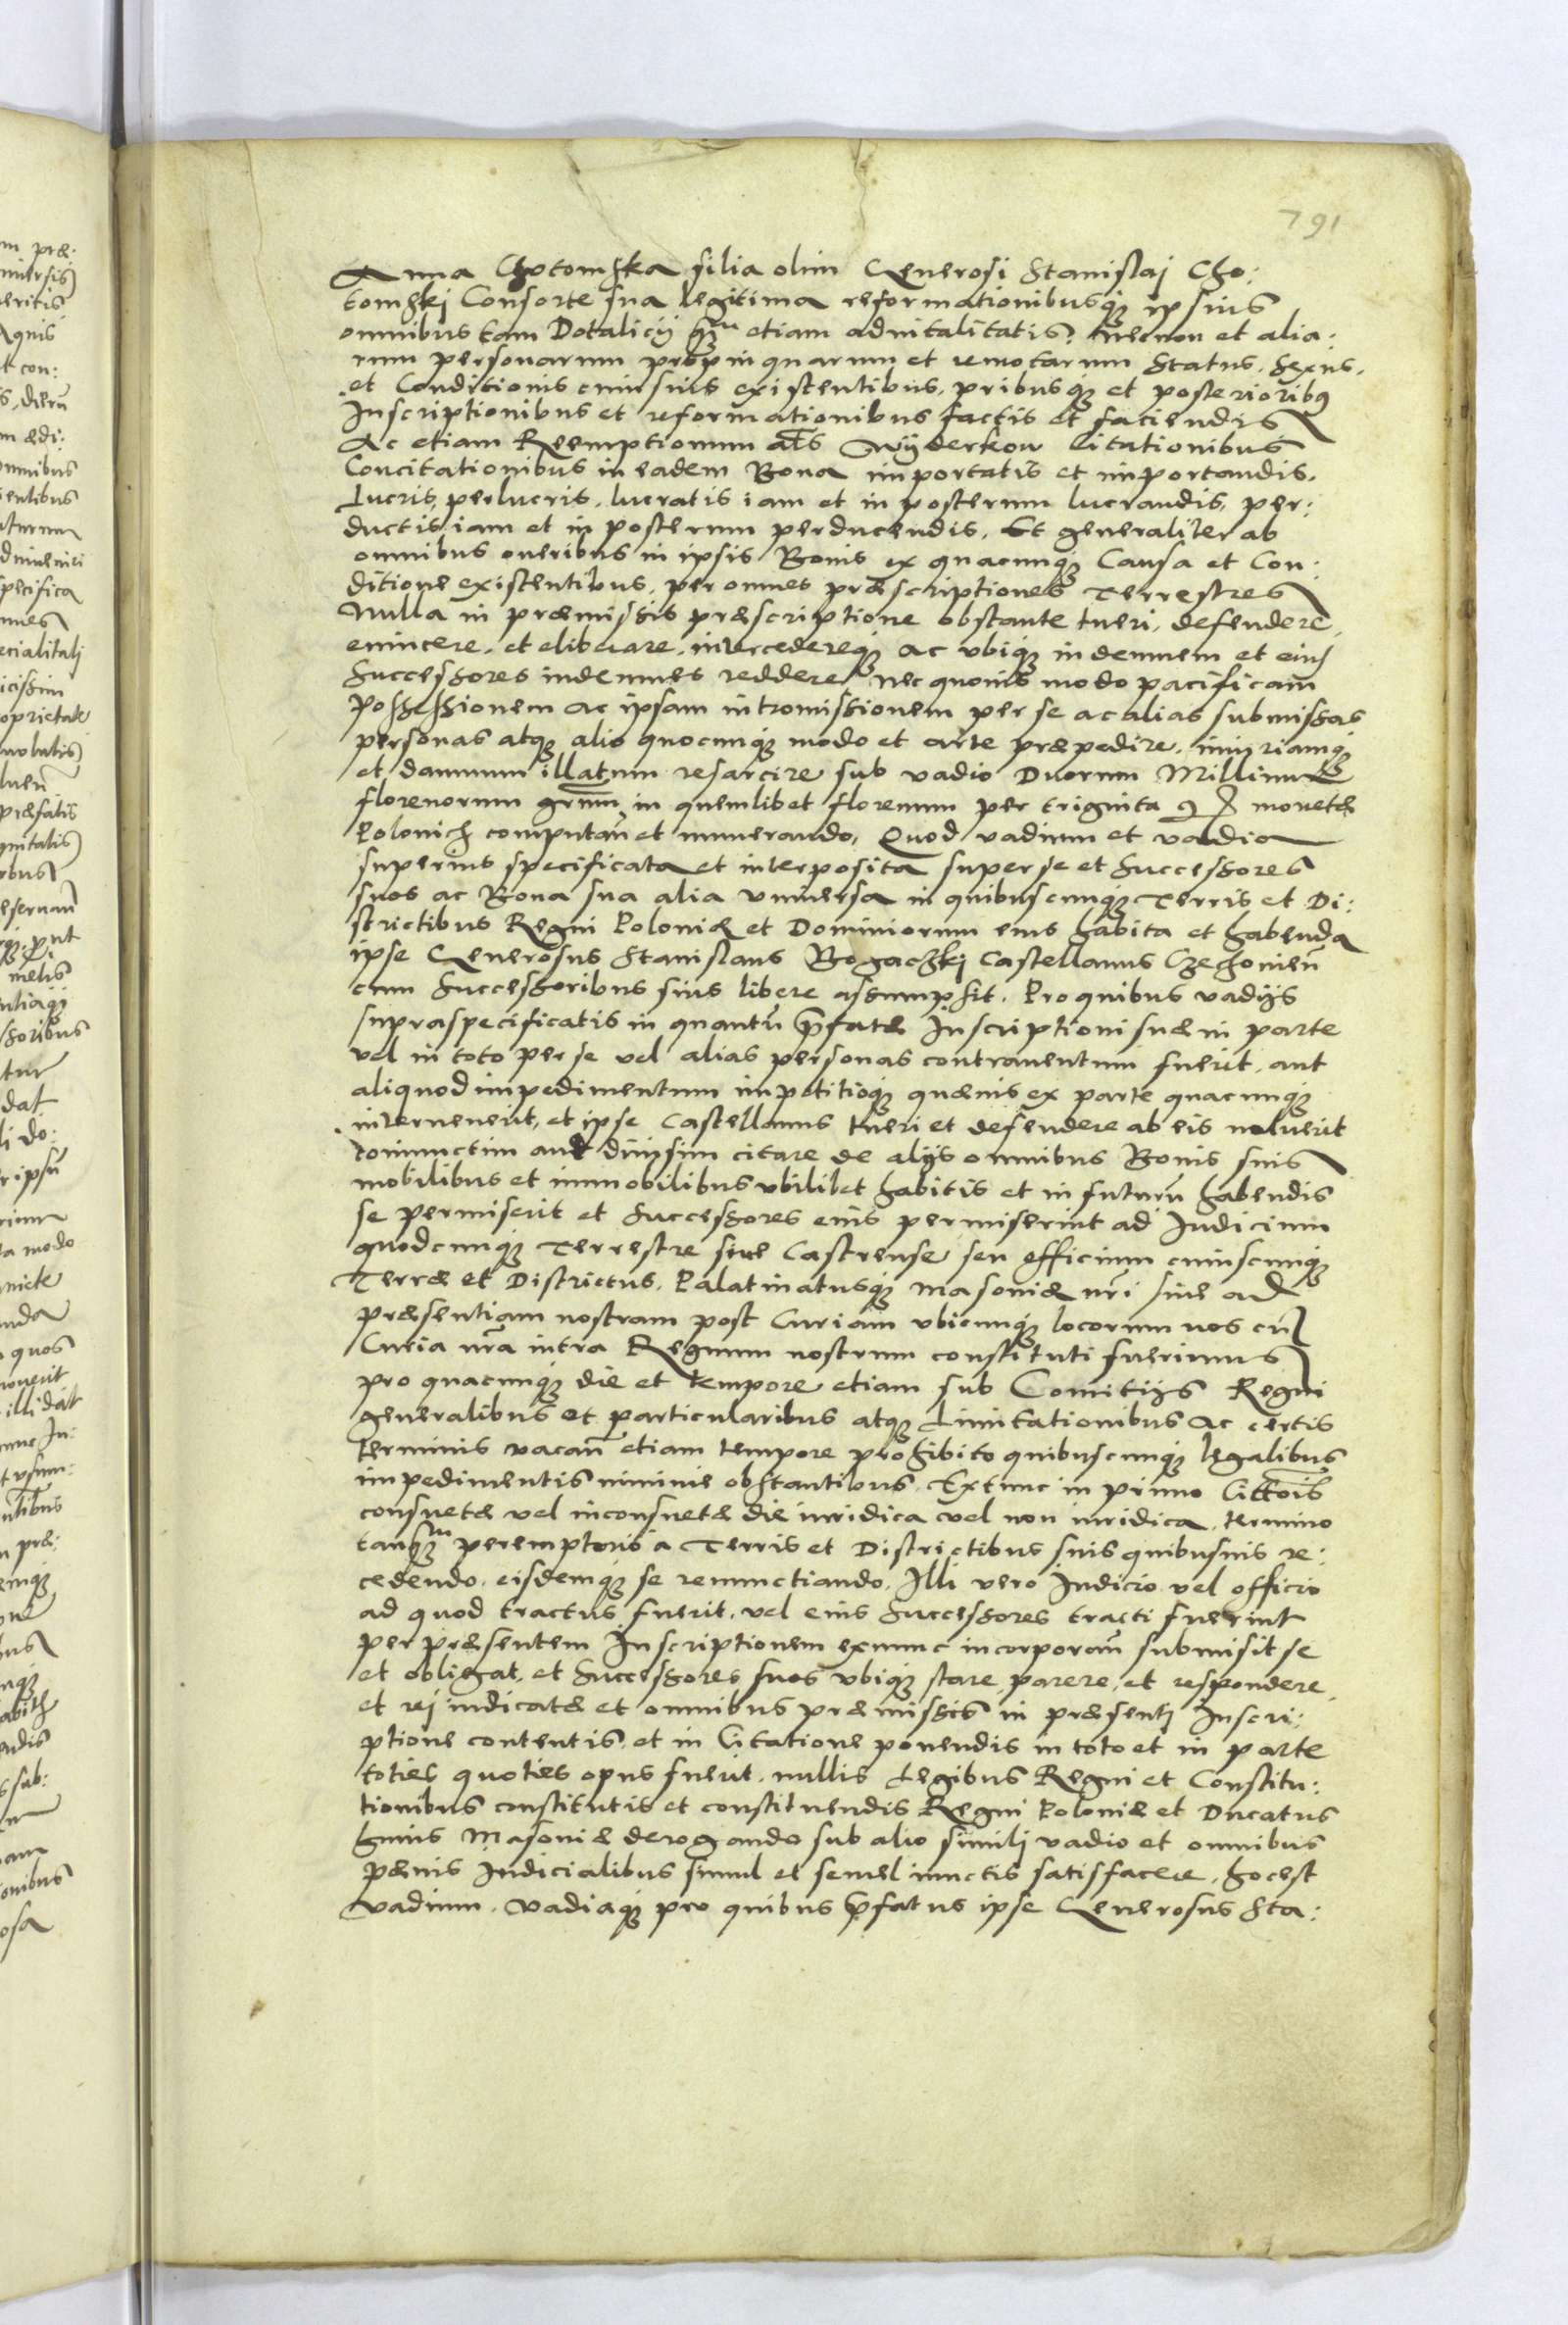 791
Anna Chotomska filia olim Generosi Stanislaj Cho:
tomskj Consorte sua legitima reformationibusq; ipsius
omnibus tam Dotalicij q͂m etiam aduitalitatis, necnon et alia:
rum personarum propinquarum et remotarum Status, Sexus,
et Conditionis cuiusuis existentibus, pribusq; et posterioribus
Inscriptionibus et reformationibus factis et faciendis
Ac etiam Reemptionum al̃s Wyderkow Citationibus
Concitationibus in eadem Bona importatis et importandis.
Lucris, perlucris, lucratis iam et in posterum lucrandis, per:
ductis iam et in posterum perducendis, Et generaliter ab
omnibus oneribus in ipsis Bonis ex quacunq; Causa et Con:
ditione existentibus, per omnes præscriptiones Terrestres
Nulla in præmissis præscriptione obstante tueri, defendere,
euincere, et eliberare, intercedereq; ac vbiq; indemnem et eius
Successores indemnes reddere, nec quouis modo pacificam
Possessionem ac ipsam intromissionem per se ac alias submissas
personas atq; alio quocunq; modo et arte præpedire, iniuriamq;
et damnum illatum resarcire sub vadio Duorum Millium
florenorum in quemlibet florenum per triginta monetæ
Polonich computañ et numerando, Quod vadium et vadia
superius specificata et interposita super se et Successores
suos ac Bona sua alia vniuersa in quibuscunq; Terris et Di:
strictibus Regni Poloniæ et Dominiorum eius habita et habenda
ipse Generosus Stanislaus Bogaczkj Castellanus Czechonieñ
cum Successoribus suis libere assumpsit. Pro quibus vadijs
supraspecificatis in quantũ p̃fatæ Inscriptioni suæ in parte
vel in toto per se vel alias personas contrauentum fuerit, aut
aliquod impedimentum impetitioq; quæuis ex parte quacunq;
interuenerit, et ipse Castellanus tueri et defendere ab eis noluerit
coniunctim aut diuisim citare de alijs omnibus Bonis suis
mobilibus et immobilibus vbilibet habitis et in futurũ habendis
se permiserit et Successores eius permiserint ad Iudicium
quodcunq; Terrestre siue Castrense seu officium cuiuscunq;
Terræ et Districtus, Palatinatusq; Masoniæ nr̃i siue ad
præsentiam nostram post Curiam vbicunq; locorum nos cũ
Curia nr̃a intra Regnum nostrum constituti fuerimus
pro quacunq; die et tempore etiam sub Comitijs Regni
generalibus et particularibus atq; Limitationibus ac certis
terminis vacañ etiam tempore prohibito quibuscunq; legalibus
impedimentis minime obstantibus. Extunc in primo Citt̃ois
consuetæ vel inconsuetæ die iuridica vel non iuridica, termino
tanq͂m peremptorio a Terris et Districtibus suis quibusuis re:
cedendo, eisdemq; se renunctiando. Illi vero Iudicio vel officio
ad quod tractus fuerit, vel eius Successores tracti fuerint
per præsentem Inscriptionem exnunc incorporañ submisit se
et obligat, et Successores suos vbiq; stare, parere, et respondere,
et rej iudicatæ et omnibus præmissis in præsentj Inscri:
ptione contentis, et in Citatione ponendis in toto et in parte
toties quoties opus fuerit, nullis Legibus Regni et Constitu:
tionibus constitutis et constituendis Regni Poloniæ et Ducatus
huius Masoniæ derogando sub alio similj vadio et omnibus
pænis Iudicialibus simul et semel iunctis satisfacere, hoc est
vadium, vadiaq; pro quibus p̃fatus ipse Generosus Sta: